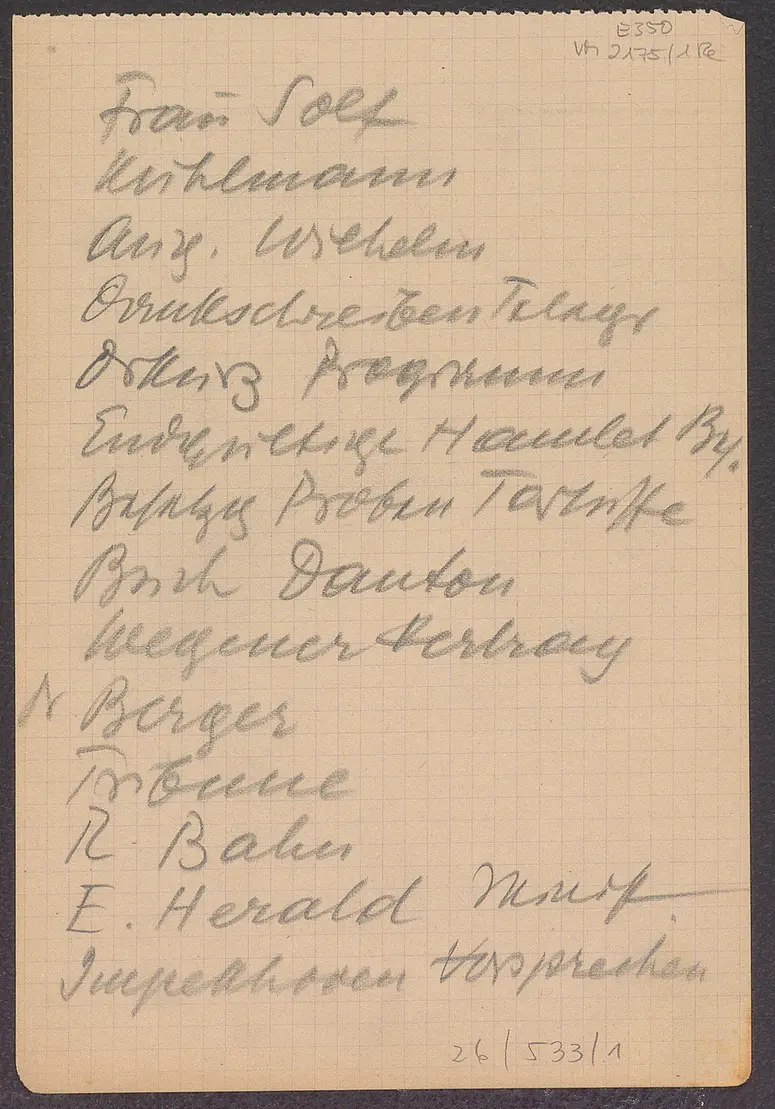 E350
2175/1 Re
Frau Solf
Kühlmann
Aug. Wilhelm
Druckschreiben Telegr
Programm
Endgültige Hamlet Bes.
Besetzg Proben Tartuffe
Buch Danton
Wegener Vertrag
Dr Berger
Tribüne
R Bahn
E. Herald
Impekhoven Vorsprechen
26/533/1